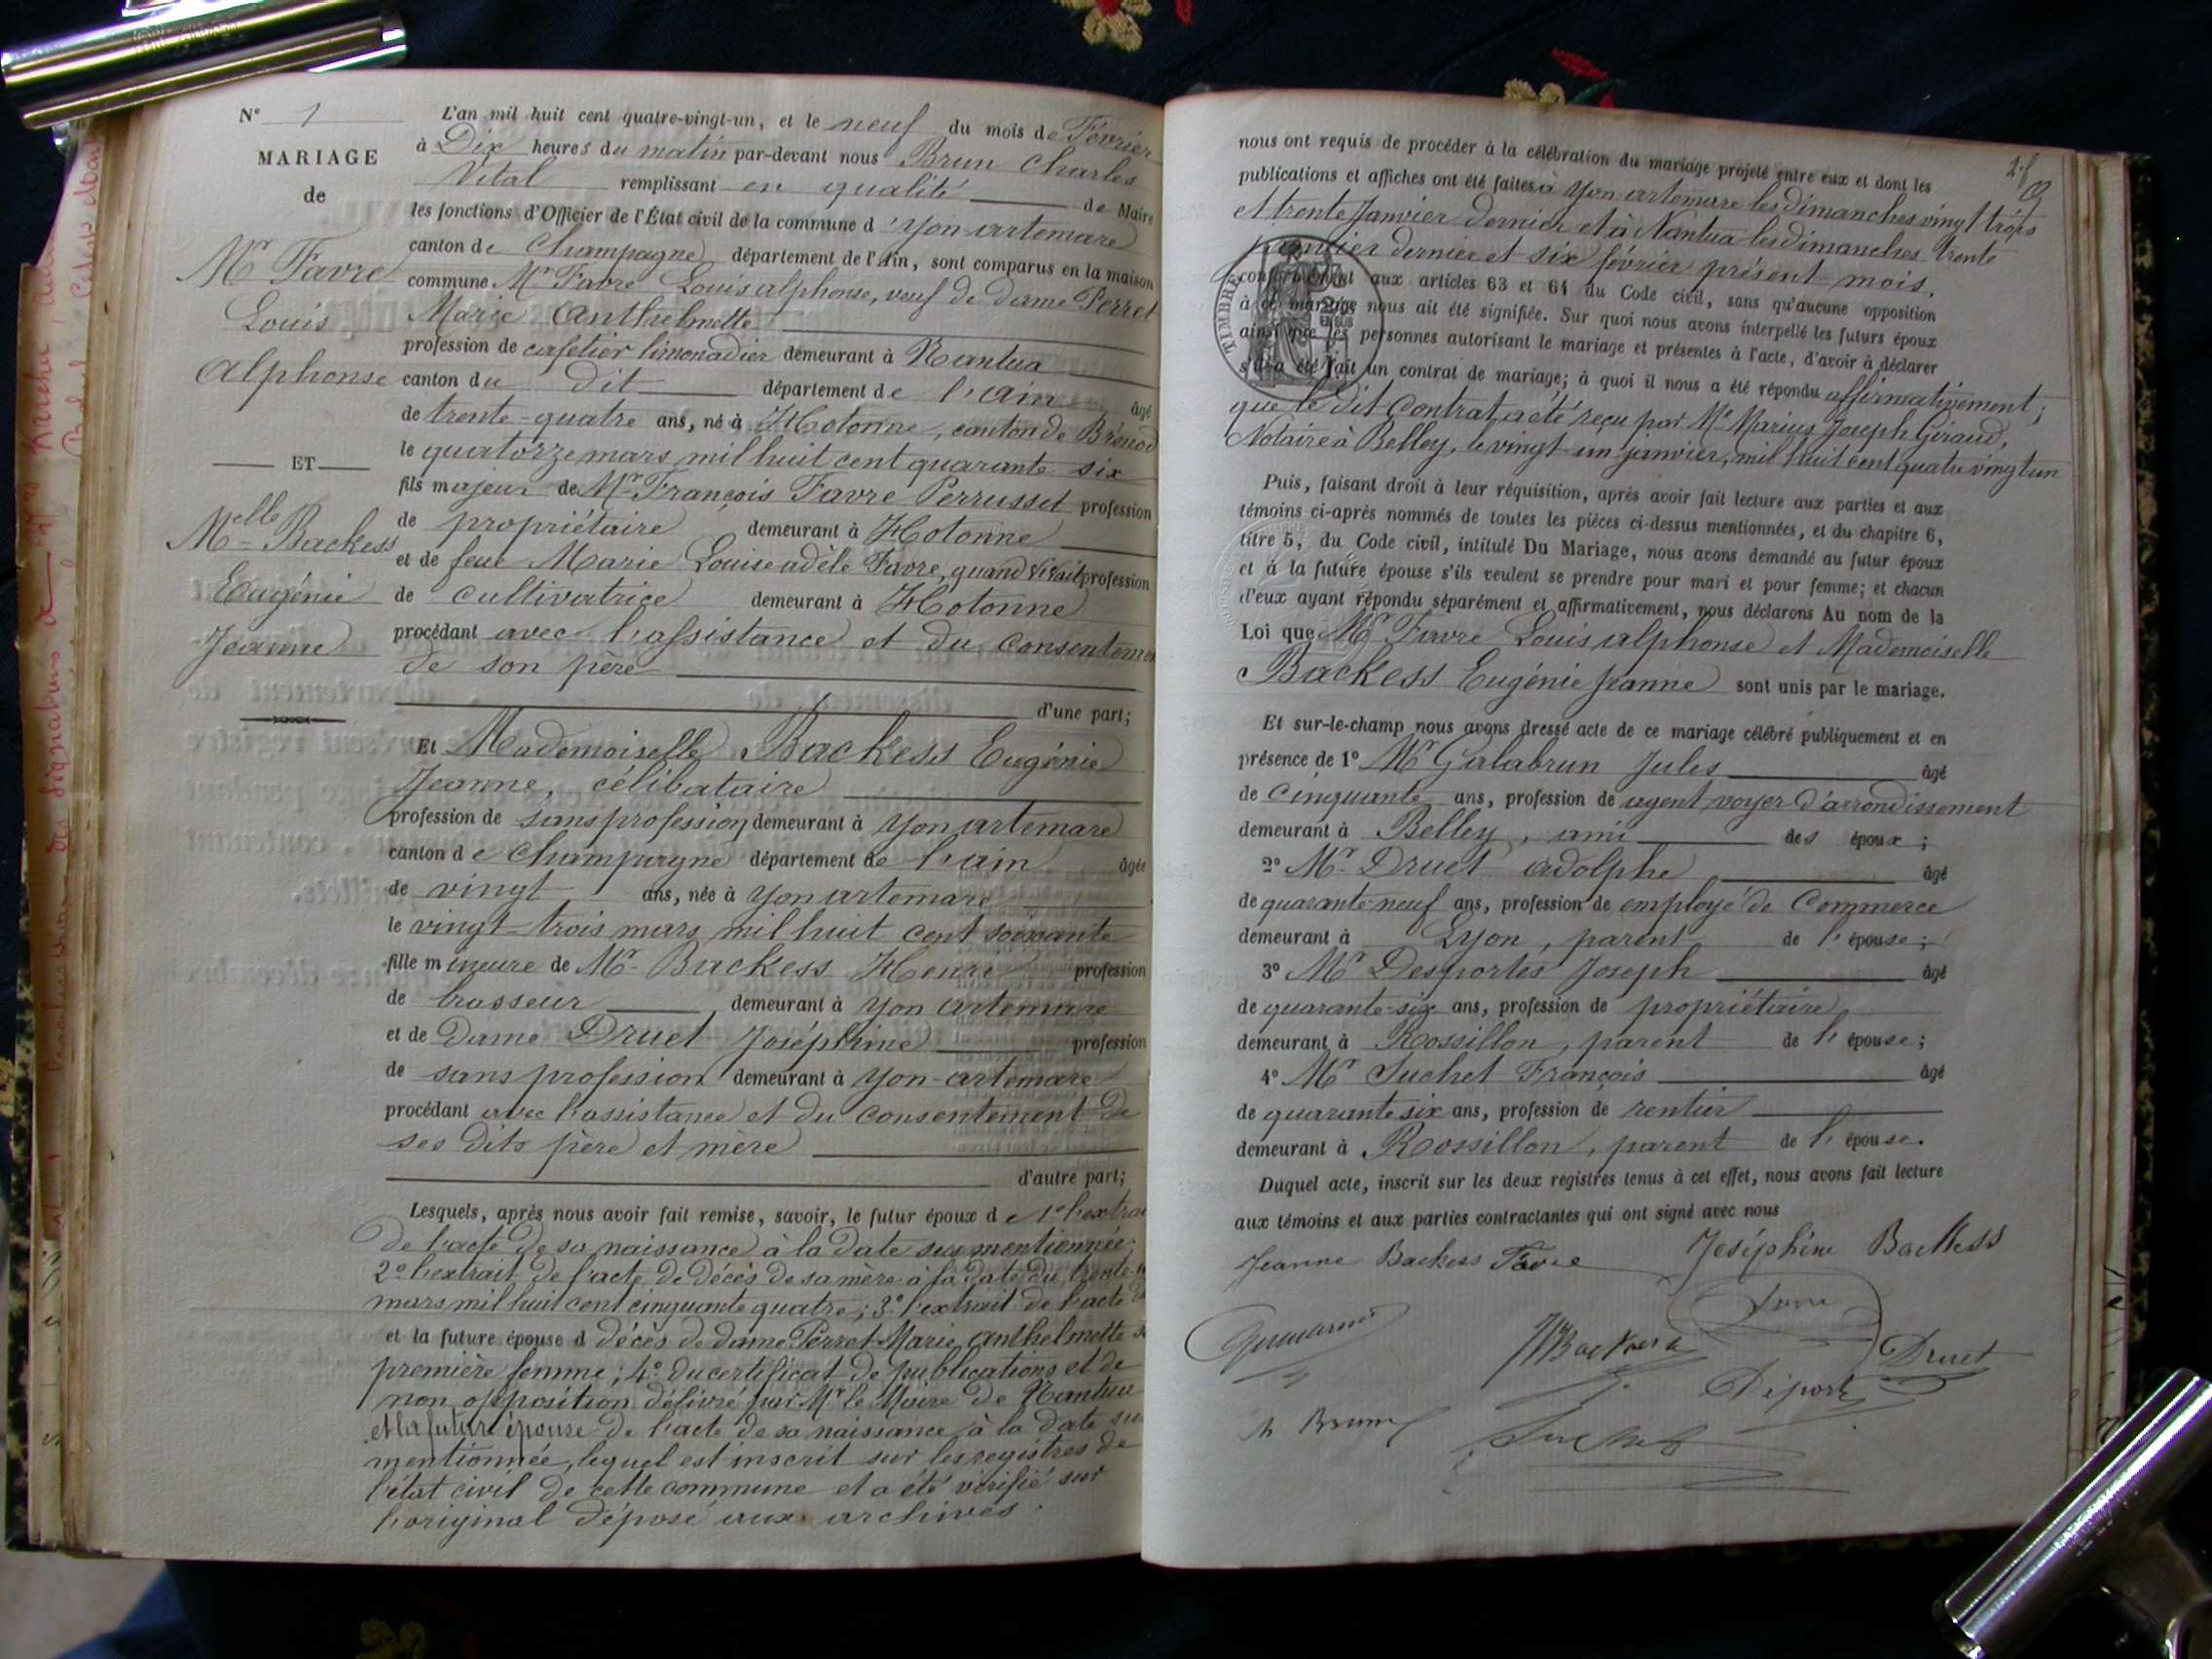 N° 1
MARIAGE
de
Mr Favre
Louis
Alphonse
ET
Melle Backess
Eugénie
Jeanne
L'an mil huit cent quatre-vingt-un, et le neuf du mois de Février
à Dix heures du matin par-devant nous Brun Charles
Vital remplissant en qualité de Maire
les fonctions d'Officier de l'État civil de la commune d'yon artemare
canton de Champagne, département de l'Ain, sont comparus en la maison
commune Mr Favre Louis alphonse, veuf de dame Perret
Marie Anthelmette
profession de cafetier limonadier demeurant à Nantua
canton du dit département de l'ain âgé
de trente-quatre ans, né à Hotonne, canton de Brénod
le quatorze mars mil huit cent quarante six
fils majeur de Mr François Favre Perrusset profession
de propriétaire demeurant à Hotonne
et de feue Marie Louise adèle Favre, quand vivait profession
de cultivatrice demeurant à Hotonne
procédant avec l'assistance et du consenteme
de son père
d'une part;
Et Mademoiselle Backess Eugénie
Jeanne, célibataire
profession de sans profession demeurant à yon artemare
canton de Champagne département de l'ain âgée
de vingt ans, née à yon artemare
le vingt-trois mars mil huit cent soixante
fille mineure de Mr Backess Henri profession
de brasseur demeurant à yon artemare
et de Dame Druet Joséphine profession
de sans profession demeurant à yon-artemare
procédant avec l'assistance et du consentement de
ses dits père et mère
d'autre part;
Lesquels, après nous avoir fait remise, savoir, le futur époux de 1° l'extrai
de l'acte de sa naissance à la date sus mentionnée;
2° l'extrait de l'acte de décès de sa mère à la date du trente
mars mil huit cent cinquante quatre; 3° l'extrait de l'acte de
et la future épouse d décès de dame Perret Marie Anthelmette sa
première femme; 4° du certificat de publications et de
non opposition délivré par Mr le Maire de Nantua
et la future épouse de l'acte de sa naissance à la date sus
mentionnée, lequel est inscrit sur les registres de
l'état civil de cette commune et a été vérifié sur
l'original déposé aux archives.
nous ont requis de procéder à la célébration du mariage projeté entre eux et dont les
publications et affiches ont été faites à yon artemare les dimanches vingt trois
et trente Janvier dernier et à Nantua les dimanches trente
janvier dernier et six février présent mois,
conformément aux articles 63 et 64 du Code civil, sans qu'aucune opposition
à ce mariage nous ait été signifiée. Sur quoi nous avons interpellé les futurs époux
ainsi que les personnes autorisant le mariage et présentes à l'acte, d'avoir à déclarer
s'il a été fait un contrat de mariage; à quoi il nous a été répondu affirmativement;
que le dit Contrat a été reçu par Me Marius Joseph Giraud,
Notaire à Belley, le vingt un janvier, mil huit cent quatre vingt un
TIMBRE
Puis, faisant droit à leur réquisition, après avoir fait lecture aux parties et aux
témoins ci-après nommés de toutes les pièces ci-dessus mentionnées, et du chapitre 6,
titre 5, du Code civil, intitulé Du Mariage, nous avons demandé au futur époux
et à la future épouse s'ils veulent se prendre pour mari et pour femme; et chacun
d'eux ayant répondu séparément et affirmativement, nous déclarons Au nom de la
Loi que Mr Favre Louis alphonse et Mademoiselle
Backess Eugénie jeanne sont unis par le mariage.
Et sur-le-champ nous avons dressé acte de ce mariage célébré publiquement et en
présence de 1° Mr Galabrun Jules âgé
de Cinquante ans, profession de agent voyer d'arrondissement
demeurant à Belley, ami des époux;
2° Mr Druet adolphe âgé
de quarante-neuf ans, profession de employé de Commerce
demeurant à Lyon, parent de l'épouse;
3° Mr Desportes Joseph âgé
de quarante-six ans, profession de propriétaire
demeurant à Rossillon, parent de l'épouse;
4° Mr Suchet François âgé
de quarante six ans, profession de rentier
demeurant à Rossillon, parent de l'épouse.
Duquel acte, inscrit sur les deux registres tenus à cet effet, nous avons fait lecture
aux témoins et aux parties contractantes qui ont signé avec nous
Jeanne Backess Favre Joséphine Backess
Druet
Suchet